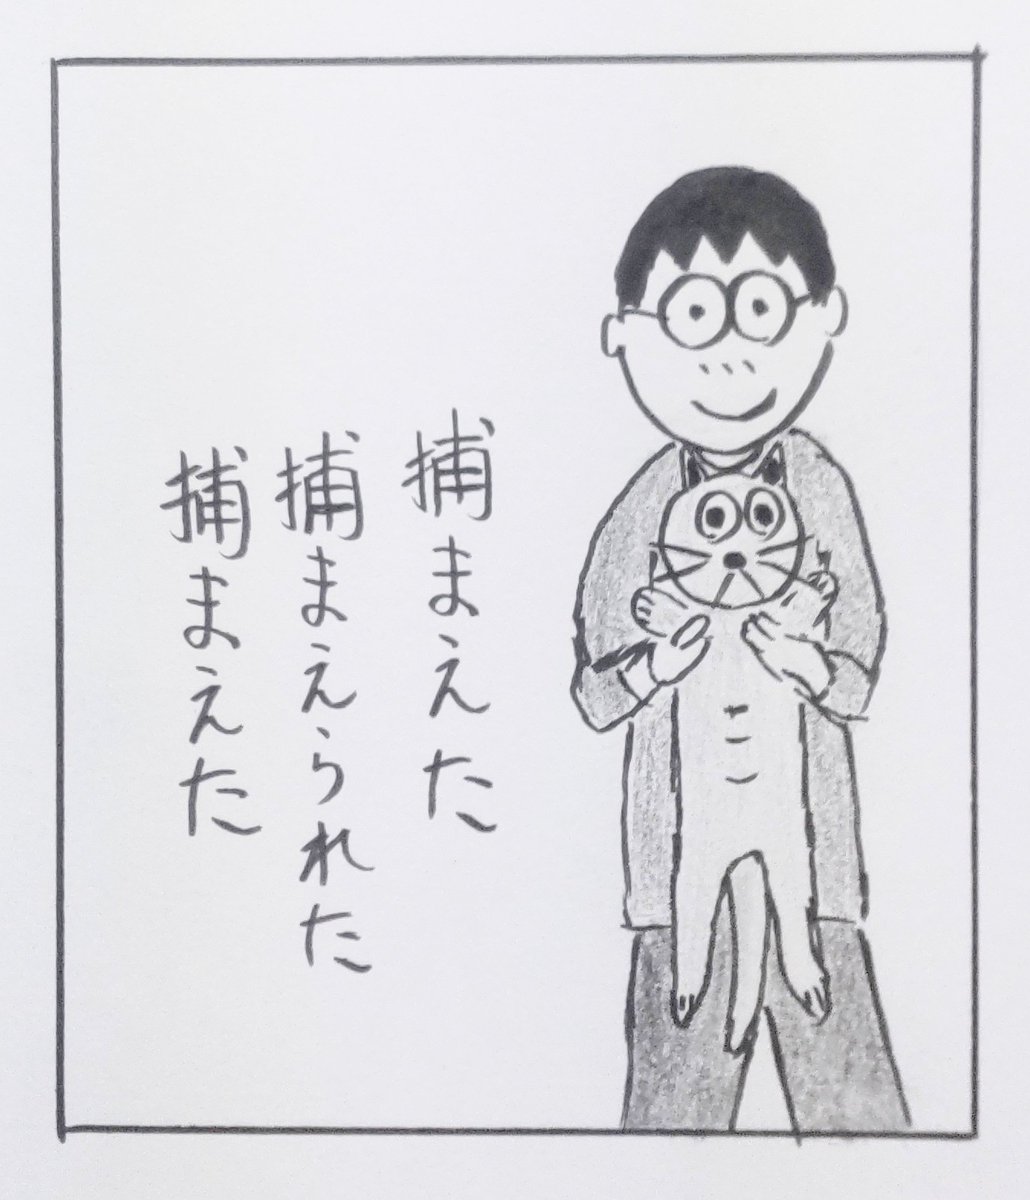 捕まえた
捕まえられた
捕まえた